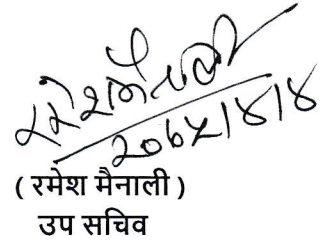 रमेश मैनाली
२०७५।४।४
( रमेश मैनाली )
उप सचिव